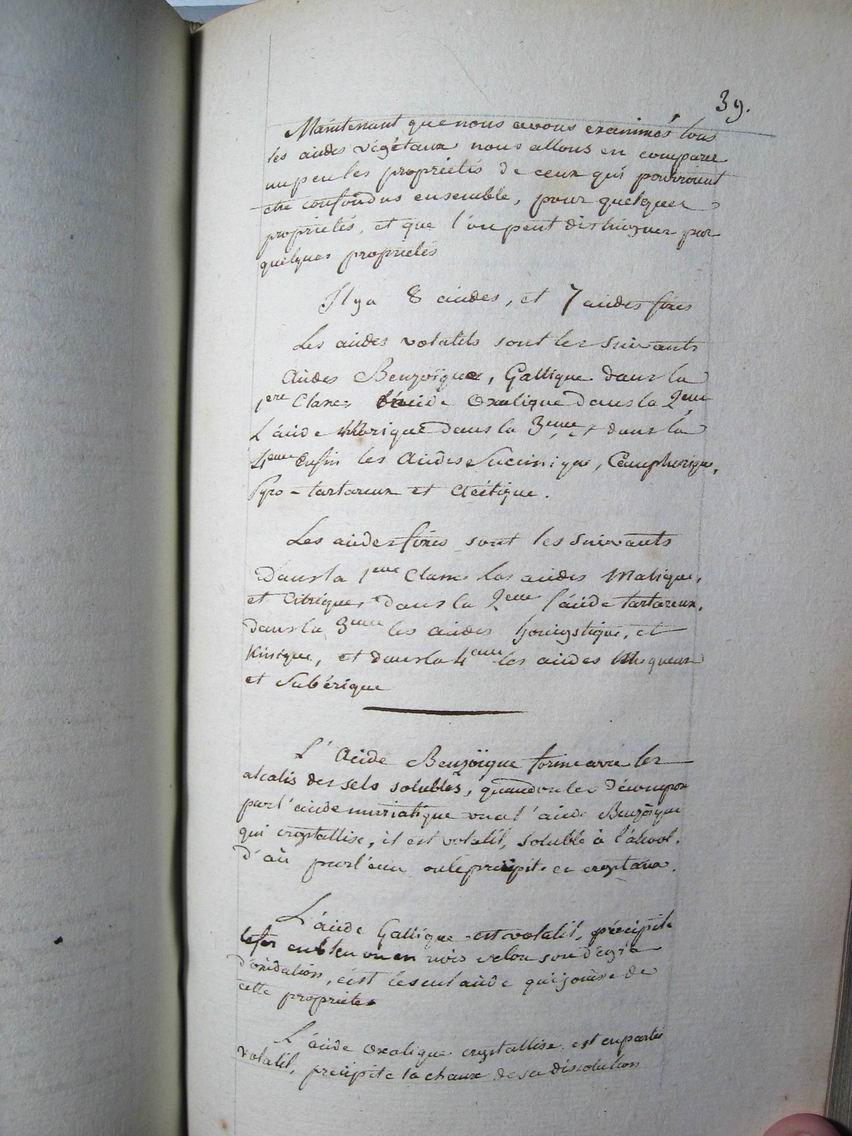 39.
Maintenant que nous avons examinés tous
les acides végétaux nous allons en comparer
un peu les propriétés de ceux qui pourroient
être confondus ensemble, pour quelques
propriétés, et que l'on peut distinguer par
quelques propriétés
Il y a 8 acides, et 7 acides fixes
Les acides volatils sont les suivants
Acides Benzoïque, Gallique dans la
1ere Classe, l'acide Oxalique dans la 2eme
L'acide dans la 3eme, et dans la
4eme enfin les Acides Succinique, Camphorique,
Pyro-tartareux et Acétique.
Les acides fixes sont les suivants
Dans la 1ere Classe les acides Malique,
et Citrique, dans la 2eme l'acide tartareux,
dans la 3eme les acides honigstique, et
Kinique, et dans la 4eme les acides Muqueux
et Subérique
L'Acide Benzoïque forme avec les
alcalis des sels solubles, quand on les décompose
par l'acide muriatique on a l'acide Benzoïque
qui crystallise, il est volatil, soluble à l'alcool,
d'où par l'eau on le précipite en crystaux.
L'acide Gallique est volatil, précipite
le fer en bleu ou en noir selon son dégré
d'oxidation, c'est le seul acide qui jouisse de
cette propriété
L'acide Oxalique crystallise, est en partie
volatil, précipite la chaux de sa dissolution